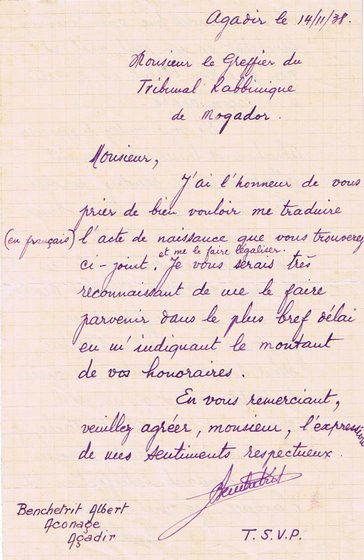 Agadir le 14/11/38.
Monsieur le Greffier du
Tribunal Rabbinique
de Mogador.
Monsieur,
J'ai l'honneur de vous
prier de bien vouloir me traduire
(en français) l'acte de naissance que vous trouverez
et me le faire légaliser.
ci-joint. Je vous serais très
reconnaissant de me le faire
parvenir dans le plus bref délai
en m'indiquant le montant
de vos honoraires.
En vous remerciant,
veuillez agréer, monsieur, l'expression
de mes sentiments respectueux.
Benchetrit
Benchetrit Albert
Aconage
Agadir
T.S.V.P.